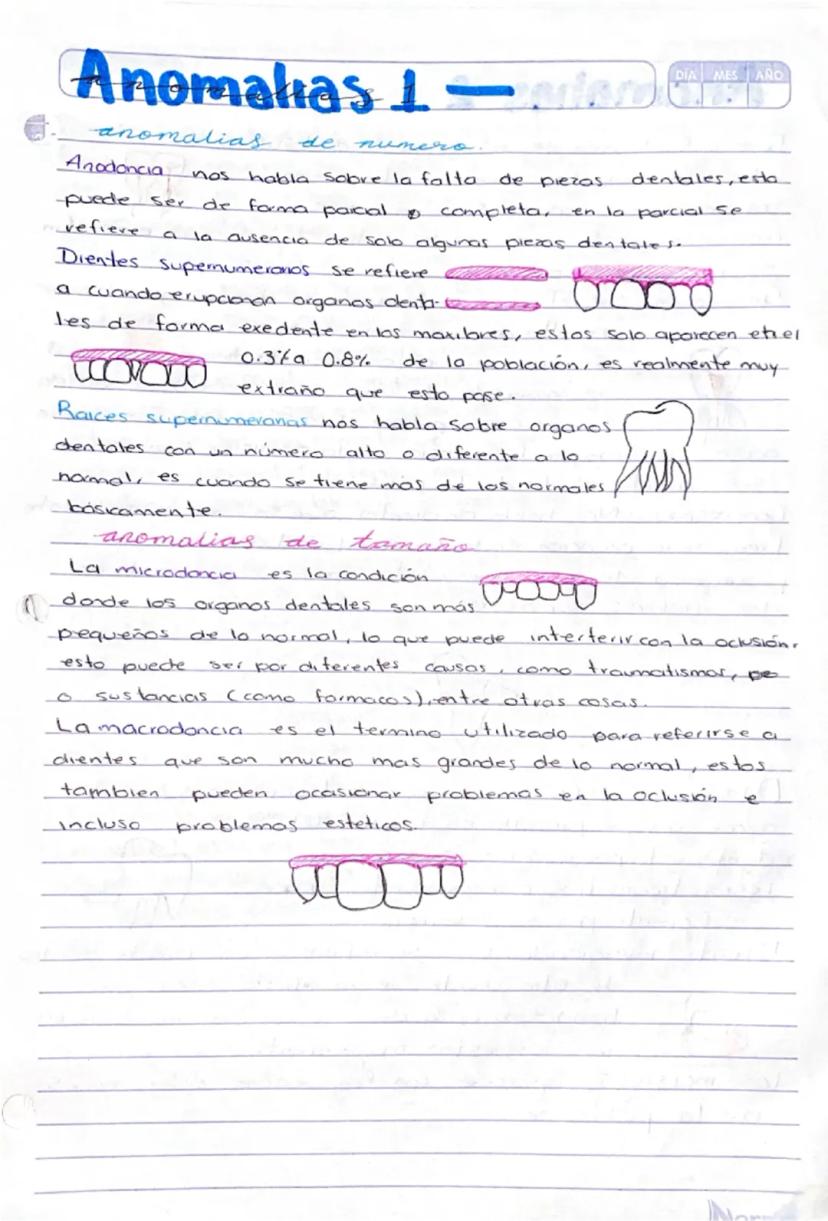 Anomalias 1 —
anomalias
DÍA MES AÑO
anomalias de numero.
Anodoncia, nos habla sobre la falta de piezas dentales, esta
puede ser de forma parcial o completa, en la parcial se
refiere a la ausencia de solo algunas piezas dentales.
Dientes supernumerarios se refiere
a cuando erupcionan organos denta-
les de forma exedente en los maxilares, estos solo aparecen en el
0.3% a 0.8% de la población, es realmente muy
extraño que esto pase.
Raices supernumerarias nos habla sobre organos
dentales con un número alto o diferente a lo
normal, es cuando se tiene mas de los normales
básicamente.
anomalias de tamaño
La microdoncia es la condición
donde los organos dentales son más
pequeños de lo normal, lo que puede interferir con la oclusión,
esto puede ser por diferentes causas, como traumatismos, pe
o sustancias (como farmacos), entre otras cosas.
La macrodoncia es el termino utilizado para referirse a
dientes que son mucho mas grandes de lo normal, estos
tambien pueden ocasionar problemas en la oclusión e
incluso problemas esteticos.